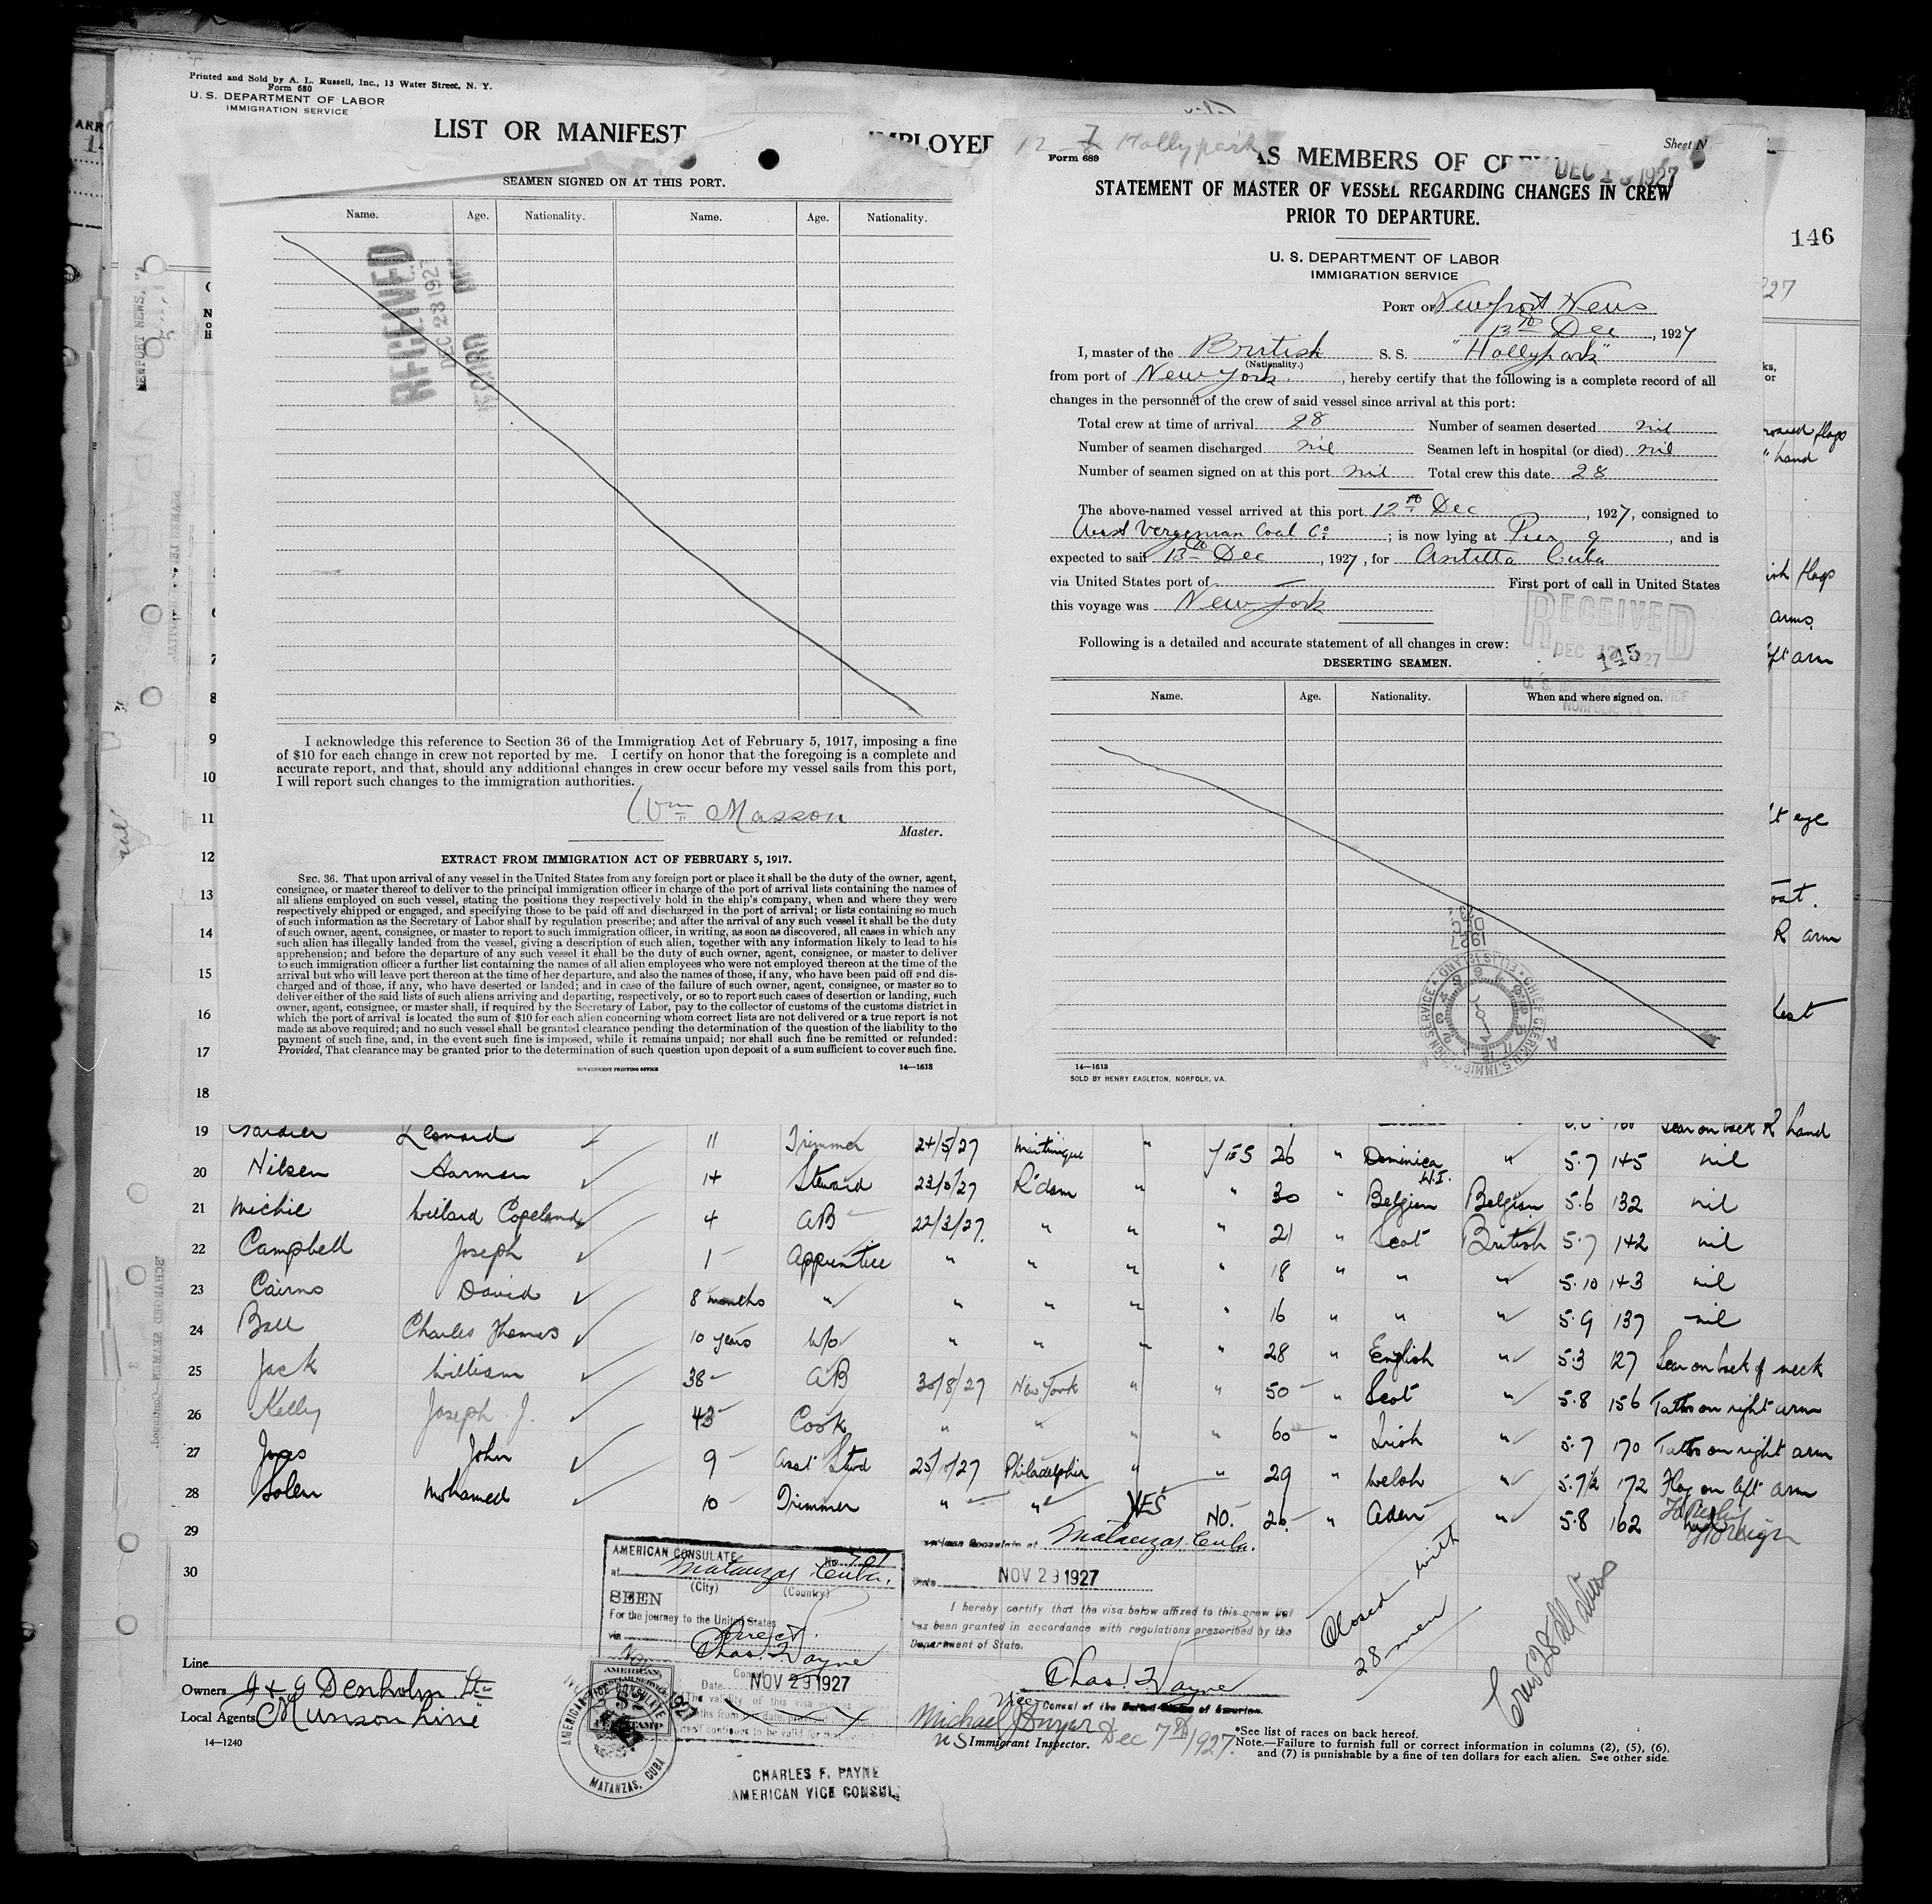 Printed and Sold by A. L. Russell, Inc., 13 Water Street, N. Y.
Form 680
U. S. DEPARTMENT OF LABOR
IMMIGRATION SERVICE
LIST OR MANIFEST
EMPLOYED
AS MEMBERS OF CREW
Sheet N
SEAMEN SIGNED ON AT THIS PORT.
Name. Age. Nationality. Name. Age. Nationality.
RECEIVED
DEC 23 192
I acknowledge this reference to Section 36 of the Immigration Act of February 5, 1917, imposing a fine
of $10 for each change in crew not reported by me. I certify on honor that the foregoing is a complete and
accurate report, and that, should any additional changes in crew occur before my vessel sails from this port,
I will report such changes to the immigration authorities.
Wm Masson
Master.
EXTRACT FROM IMMIGRATION ACT OF FEBRUARY 5, 1917.
SEC. 36. That upon arrival of any vessel in the United States from any foreign port or place it shall be the duty of the owner, agent,
consignee, or master thereof to deliver to the principal immigration officer in charge of the port of arrival lists containing the names of
all aliens employed on such vessel, stating the positions they respectively hold in the ship's company, when and where they were
respectively shipped or engaged, and specifying those to be paid off and discharged in the port of arrival; or lists containing so much
of such information as the Secretary of Labor shall by regulation prescribe; and after the arrival of any such vessel it shall be the duty
of such owner, agent, consignee, or master to report to such immigration officer, in writing, as soon as discovered, all cases in which any
such alien has illegally landed from the vessel, giving a description of such alien, together with any information likely to lead to his
apprehension; and before the departure of any such vessel it shall be the duty of such owner, agent, consignee, or master to deliver
to such immigration officer a further list containing the names of all alien employees who were not employed thereon at the time of the
arrival but who will leave port thereon at the time of her departure, and also the names of those, if any, who have been paid off and dis-
charged and of those, if any, who have deserted or landed; and in case of the failure of such owner, agent, consignee, or master so to
deliver either of the said lists of such aliens arriving and departing, respectively, or so to report such cases of desertion or landing, such
owner, agent, consignee, or master shall, if required by the Secretary of Labor, pay to the collector of customs of the customs district in
which the port of arrival is located the sum of $10 for each alien concerning whom correct lists are not delivered or a true report is not
made as above required; and no such vessel shall be granted clearance pending the determination of the question of the liability to the
payment of such fine, and, in the event such fine is imposed, while it remains unpaid; nor shall such fine be remitted or refunded:
Provided, That clearance may be granted prior to the determination of such question upon deposit of a sum sufficient to cover such fine.
GOVERNMENT PRINTING OFFICE 14—1613
Hollypark
Form 689
STATEMENT OF MASTER OF VESSEL REGARDING CHANGES IN CREW
PRIOR TO DEPARTURE.
U. S. DEPARTMENT OF LABOR
IMMIGRATION SERVICE
PORT OF Newport News
13th Dec, 1927
I, master of the British S. S. "Hollypark"
(Nationality.)
from port of New York., hereby certify that the following is a complete record of all
changes in the personnel of the crew of said vessel since arrival at this port:
Total crew at time of arrival 28 Number of seamen deserted nil
Number of seamen discharged nil Seamen left in hospital (or died) nil
Number of seamen signed on at this port nil Total crew this date 28
The above-named vessel arrived at this port 12th Dec, 1927, consigned to
West Vergenian Coal Co; is now lying at Pier 9, and is
expected to sail 13th Dec, 1927, for Antilla Cuba
via United States port of — First port of call in United States
this voyage was New York
RECEIVED
DEC 1927
145
Following is a detailed and accurate statement of all changes in crew:
DESERTING SEAMEN.
Name. Age. Nationality. When and where signed on.
14—1613
SOLD BY HENRY EAGLETON, NORFOLK, VA.
146
9
10
11
12
13
14
15
16
17
18
19 Leonard 11 Trimmer 24/5/27 Martinique " YES 26 " Dominica W.I. " 5.7 145 nil
20 Nilsen Harman 14 Steward R'dam " " 30 " Belgian Belgian 5.6 132 nil
21 Michie Willard Copeland 4 AB 22/3/27. " " " 21 " Scot British 5.7 142 nil
22 Campbell Joseph 1 Apprentice " " " " 18 " " " 5.10 143 nil
23 Cairns David 8 months " " " " " 16 " " " 5.9 137 nil
24 Ball Charles Thomas 10 years W/o " " " " 28 " English " 5.3 127 Scar on back of neck
25 Jack William 38 AB 30/8/27 New York " " 50 " Scot " 5.8 156 Tattoo on right arm
26 Kelly Joseph J. 43 Cook " " " " 60 " Irish " 5.7 170 Tattoo on right arm
27 John 9 Asst Stwd Philadelphia " " 29 " Welsh " 5.7½ 172 Flag on left arm
28 Solen Mohamed 10 Trimmer " " YES NO. 26 " Aden " 5.8 162
29
30
AMERICAN CONSULATE No. 701
at Matanzas Cuba.
(City) (Country)
SEEN
For the journey to the United States
via Direct.
Chas. F. Payne
Consul
Date NOV 29 1927
AMERICAN VICE CONSULATE
MATANZAS, CUBA
CHARLES F. PAYNE
AMERICAN VICE CONSUL
American Consulate at Matanzas Cuba.
Date NOV 29 1927
I hereby certify that the visa below affixed to this crew list
has been granted in accordance with regulations prescribed by the
Department of State.
Chas. F. Payne
Vice Consul of the United States of America.
US Immigrant Inspector. Dec 7th/1927.
Closed with
28 men
Line
Owners J & G Denholm Ltd
Local Agents Munson Line
14—1240
*See list of races on back hereof.
Note.—Failure to furnish full or correct information in columns (2), (5), (6),
and (7) is punishable by a fine of ten dollars for each alien. See other side.